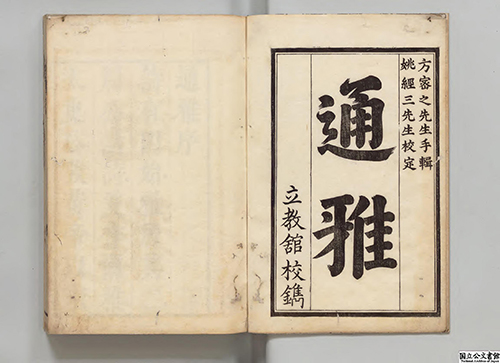 方密之先生手輯
姚經三先生校定
通雅
立教舘校鐫
国立公文書館
National Archives of Japan